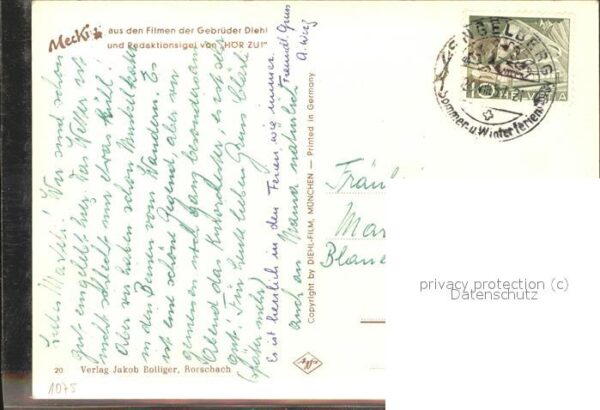 Mecki aus den Filmen der Gebrüder Diehl
und Redaktionsigel von "HÖR ZU!"
Liebe Marteli! Wir sind schon
gut eingelebt hier, das Wetter ist
nicht schlecht nur etwas kühl!
Aber wir haben schon Muskelkater
in den Beinen vom Wandern. Es
ist eine schöne Gegend, aber wir
geniessen noch ganz besonders am
Abend das Kurorchester, es ist sehr
gut! Für heute lieben Gruss bleibt
(später mehr)
auch an Mama natürlich
Es ist herrlich in den Ferien, wie immer.
Freundl. Gruss
A.
Copyright by DIEHL-FILM, MÜNCHEN — Printed in Germany
ENGELBERG
Sommer- u. Winterferien
HELVETIA
Fräul
Mar
Blane
privacy protection (c)
Datenschutz
20 Verlag Jakob Bolliger, Rorschach
1075